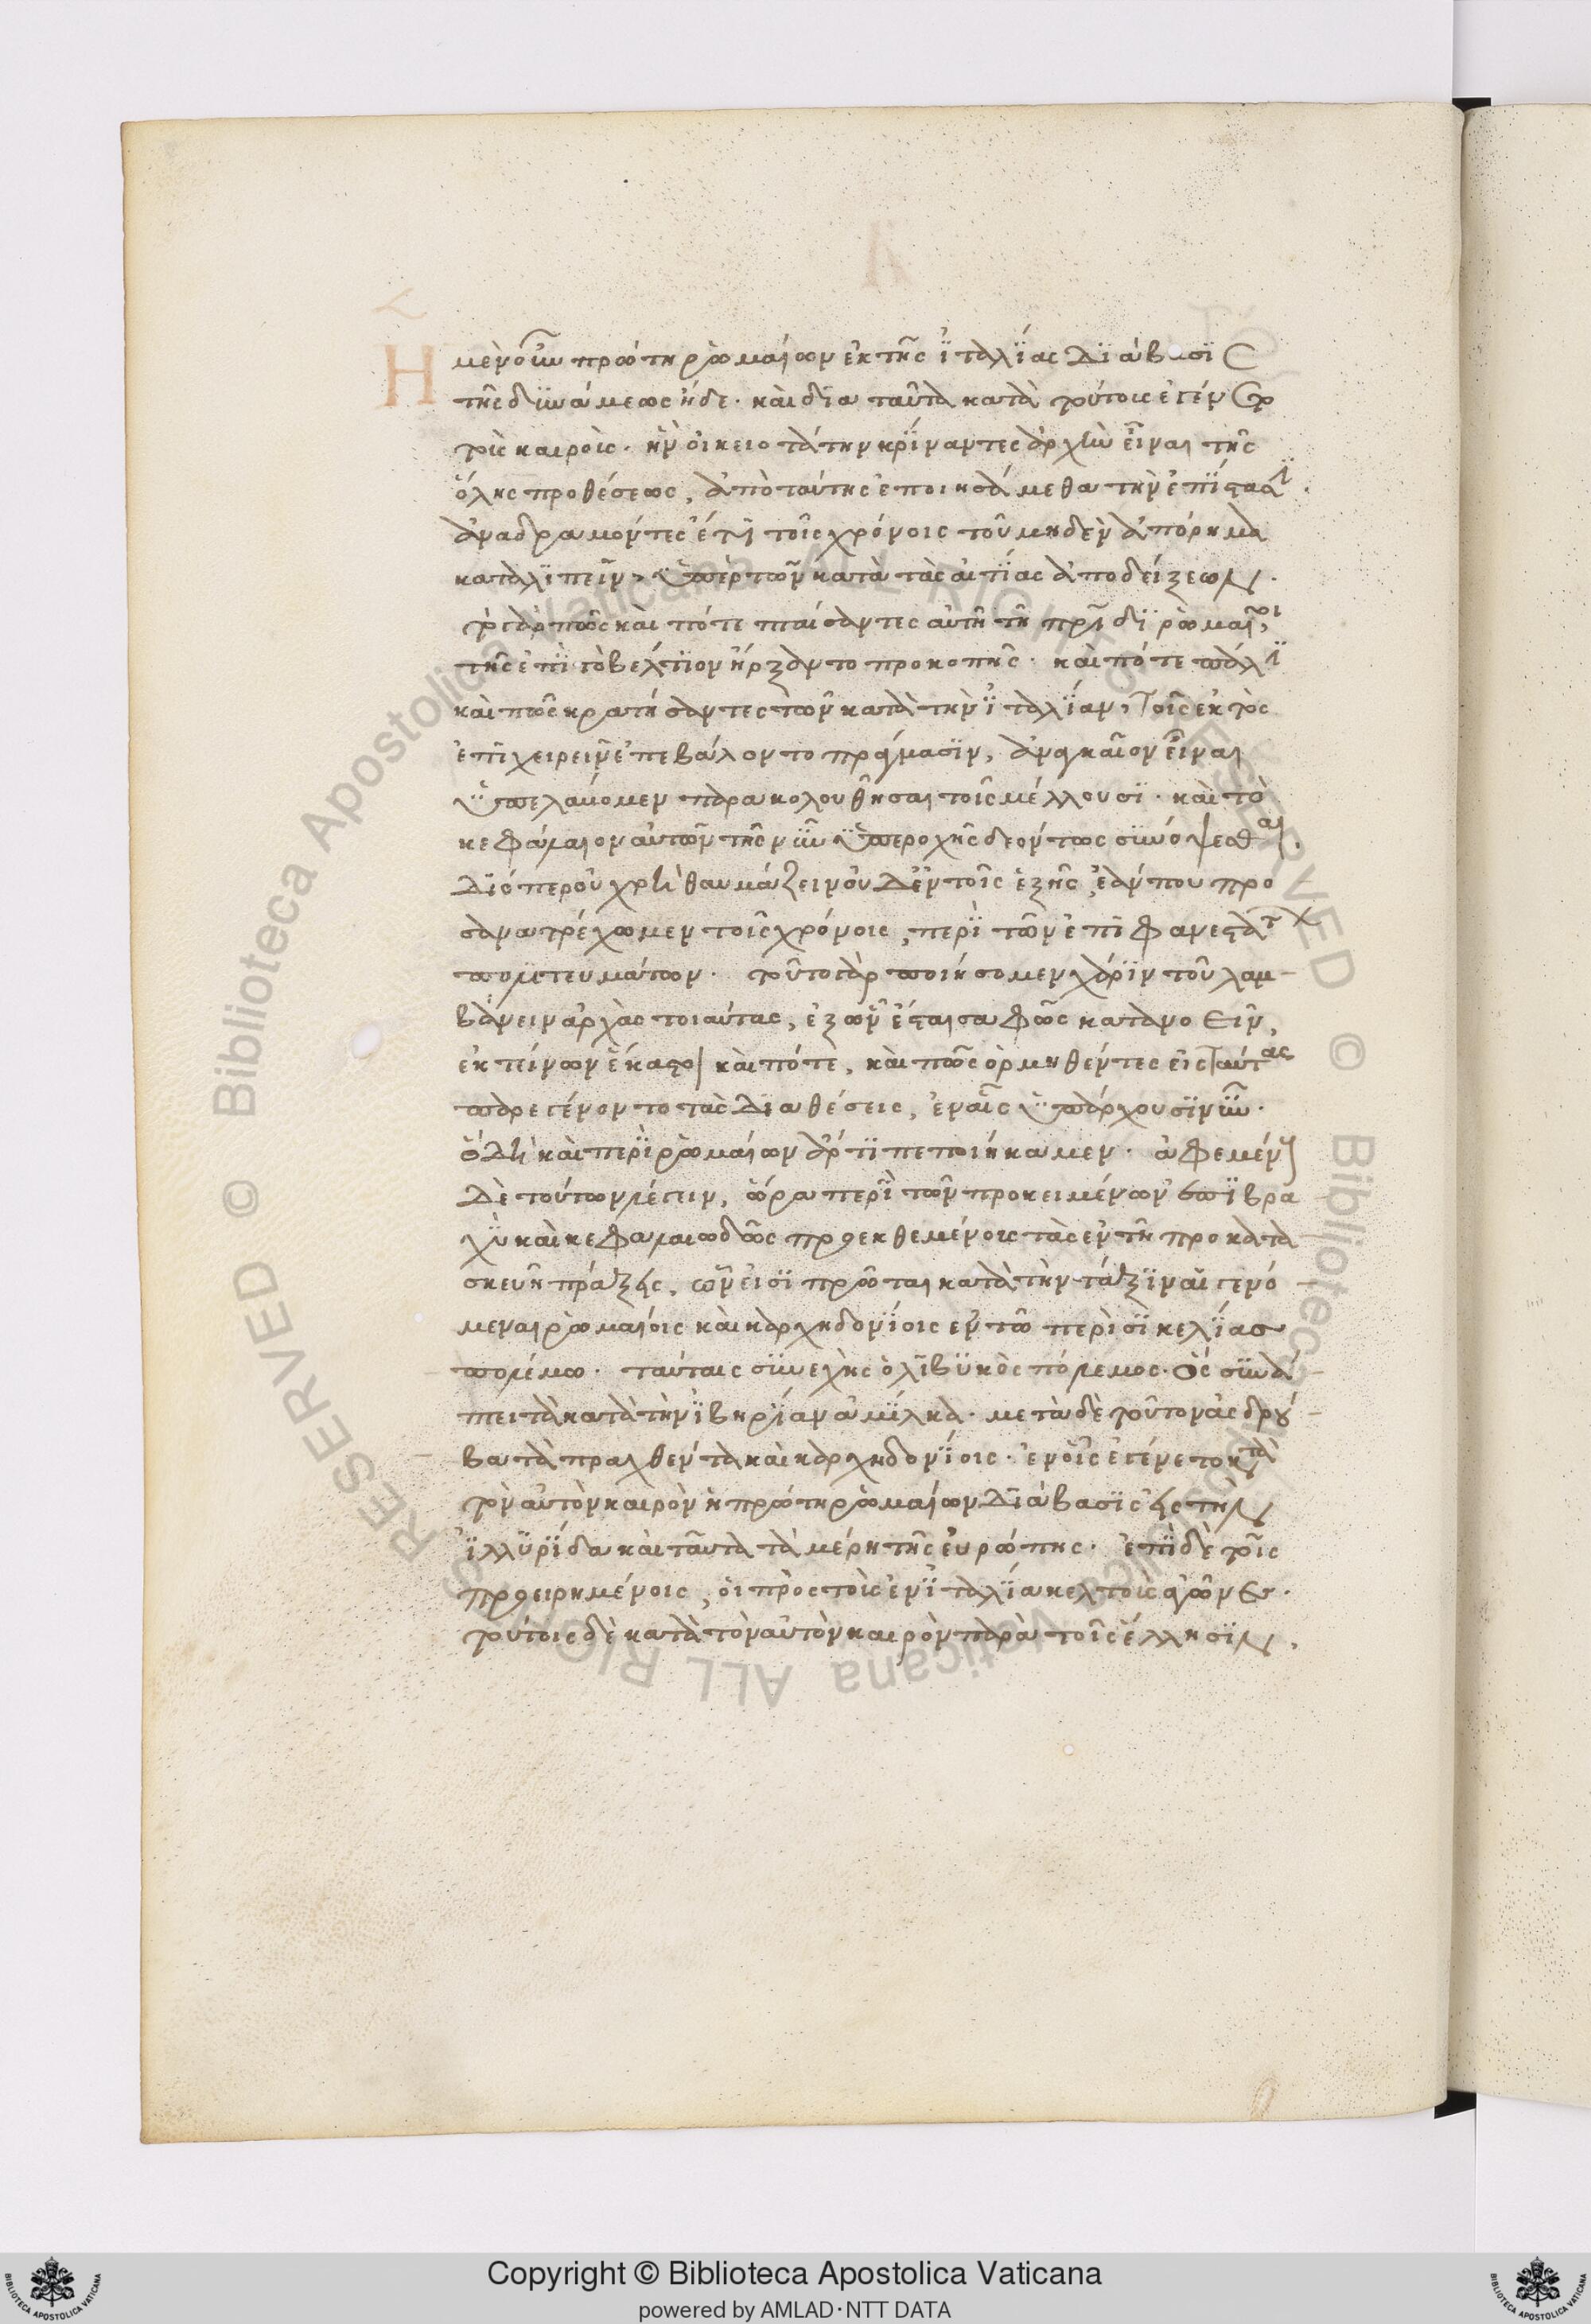 Η μὲν οὖν πρώτη ῥωμαίων ἐκ τῆς ἰταλίας διάβασις
τῆς δυνάμεως ἥδε· καὶ δια ταῦτα κατὰ τούτοις ἐγένετο
τοῖς καιροῖς· ἣν οἰκειοτάτην κρίναντες ἀρχὴν εἶναι τῆς
ὅλης προθέσεως, ἀπὸ ταύτης ἐποιησάμεθα τὴν ἐπίστασιν.
ἀναδραμόντες ἔτι τοῖς χρόνοις τοῦ μηδὲν ἀπόρημα
καταλιπεῖν, ὑπὲρ τῶν κατὰ τὰς αἰτίας ἀποδείξεων.
τὸ γὰρ πῶς καὶ πότε πταίσαντες αὐτῆ τῆ πατρίδι ῥωμαῖοι,
τῆς ἐπὶ τὸ βέλτιον ἤρξαντο προκοπῆς· καὶ πότε πάλι
καὶ πῶς κρατήσαντες τῶν κατὰ τὴν ἰταλίαν, τοῖς ἐκτὸς
ἐπιχειρεῖν ἐπεβάλοντο πράγμασιν, ἀναγκαῖον εἶναι
ὑπελάβομεν παρακολουθῆσαι τοῖς μέλλουσι· καὶ τὸ
κεφάλαιον αὐτῶν τῆς νῦν ὑπεροχῆς δεόντως συνόψεσθαι.
Διόπερ οὐ χρὴ θαυμάζειν οὐδ' ἐν τοῖς ἑξῆς, ἐάν που προ
σανατρέχωμεν τοῖς χρόνοις, περὶ τῶν ἐπιφανεστάτων
πολιτευμάτων· τοῦτο γὰρ ποιήσομεν χάριν τοῦ λαμ-
βάνειν ἀρχὰς τοιαύτας, ἐξ ὧν ἔσται σαφῶς κατανοεῖν,
ἐκ τείνων ἕκαστοι καὶ πότε, καὶ πῶς ὁρμηθέντες εἰς ταύτας
παρεγένοντο τὰς διαθέσεις, ἐν αἷς ὑπάρχουσι νῦν·
ὃ δὴ καὶ περὶ ῥωμαίων ἄρτι πεποιήκαμεν· ἀφεμένοι
δὲ τούτων λέγειν, ὥρα περὶ τῶν προκειμένων ἐπὶ βρα
χὺ καὶ κεφαλαιωδῶς προεκθεμένοις τὰς ἐν τῆ προκατα
σκευῆ πράξεις, ὧν εἰσὶ πρῶται κατὰ τὴν τάξιν αἱ γενό
μεναι ῥωμαίοις καὶ καρχηδονίοις ἐν τῶ περὶ σικελίας
πολέμω· ταύταις συνεχὴς ὁ λιβυκὸς πόλεμος· ὃς συνά
πτει τὰ κατὰ τὴν ἰβηρίαν ἀμίλκα· μετὰ δὲ τοῦτον ἀσδρού
βα τὰ πραχθέντα καὶ καρχηδονίοις· ἐν οἷς ἐγένετο κατὰ
τὸν αὐτὸν καιρὸν ἡ πρώτη ῥωμαίων διάβασις εἰς τὴν
ἰλλυρίδα καὶ ταῦτα τὰ μέρη τῆς εὐρώπης· ἐπὶ δὲ τοῖς
προειρημένοις, οἱ πρὸς τοὺς ἐν ἰταλία κελτοὺς ἀγῶνες·
τούτοις δὲ κατὰ τὸν αὐτὸν καιρὸν παρὰ τοῖς ἕλλησιν,
© Biblioteca Apostolica Vaticana ALL RIGHTS RESERVED
Copyright © Biblioteca Apostolica Vaticana
powered by AMLAD·NTT DATA
BIBLIOTECA APOSTOLICA VATICANA
BIBLIOTECA APOSTOLICA VATICANA